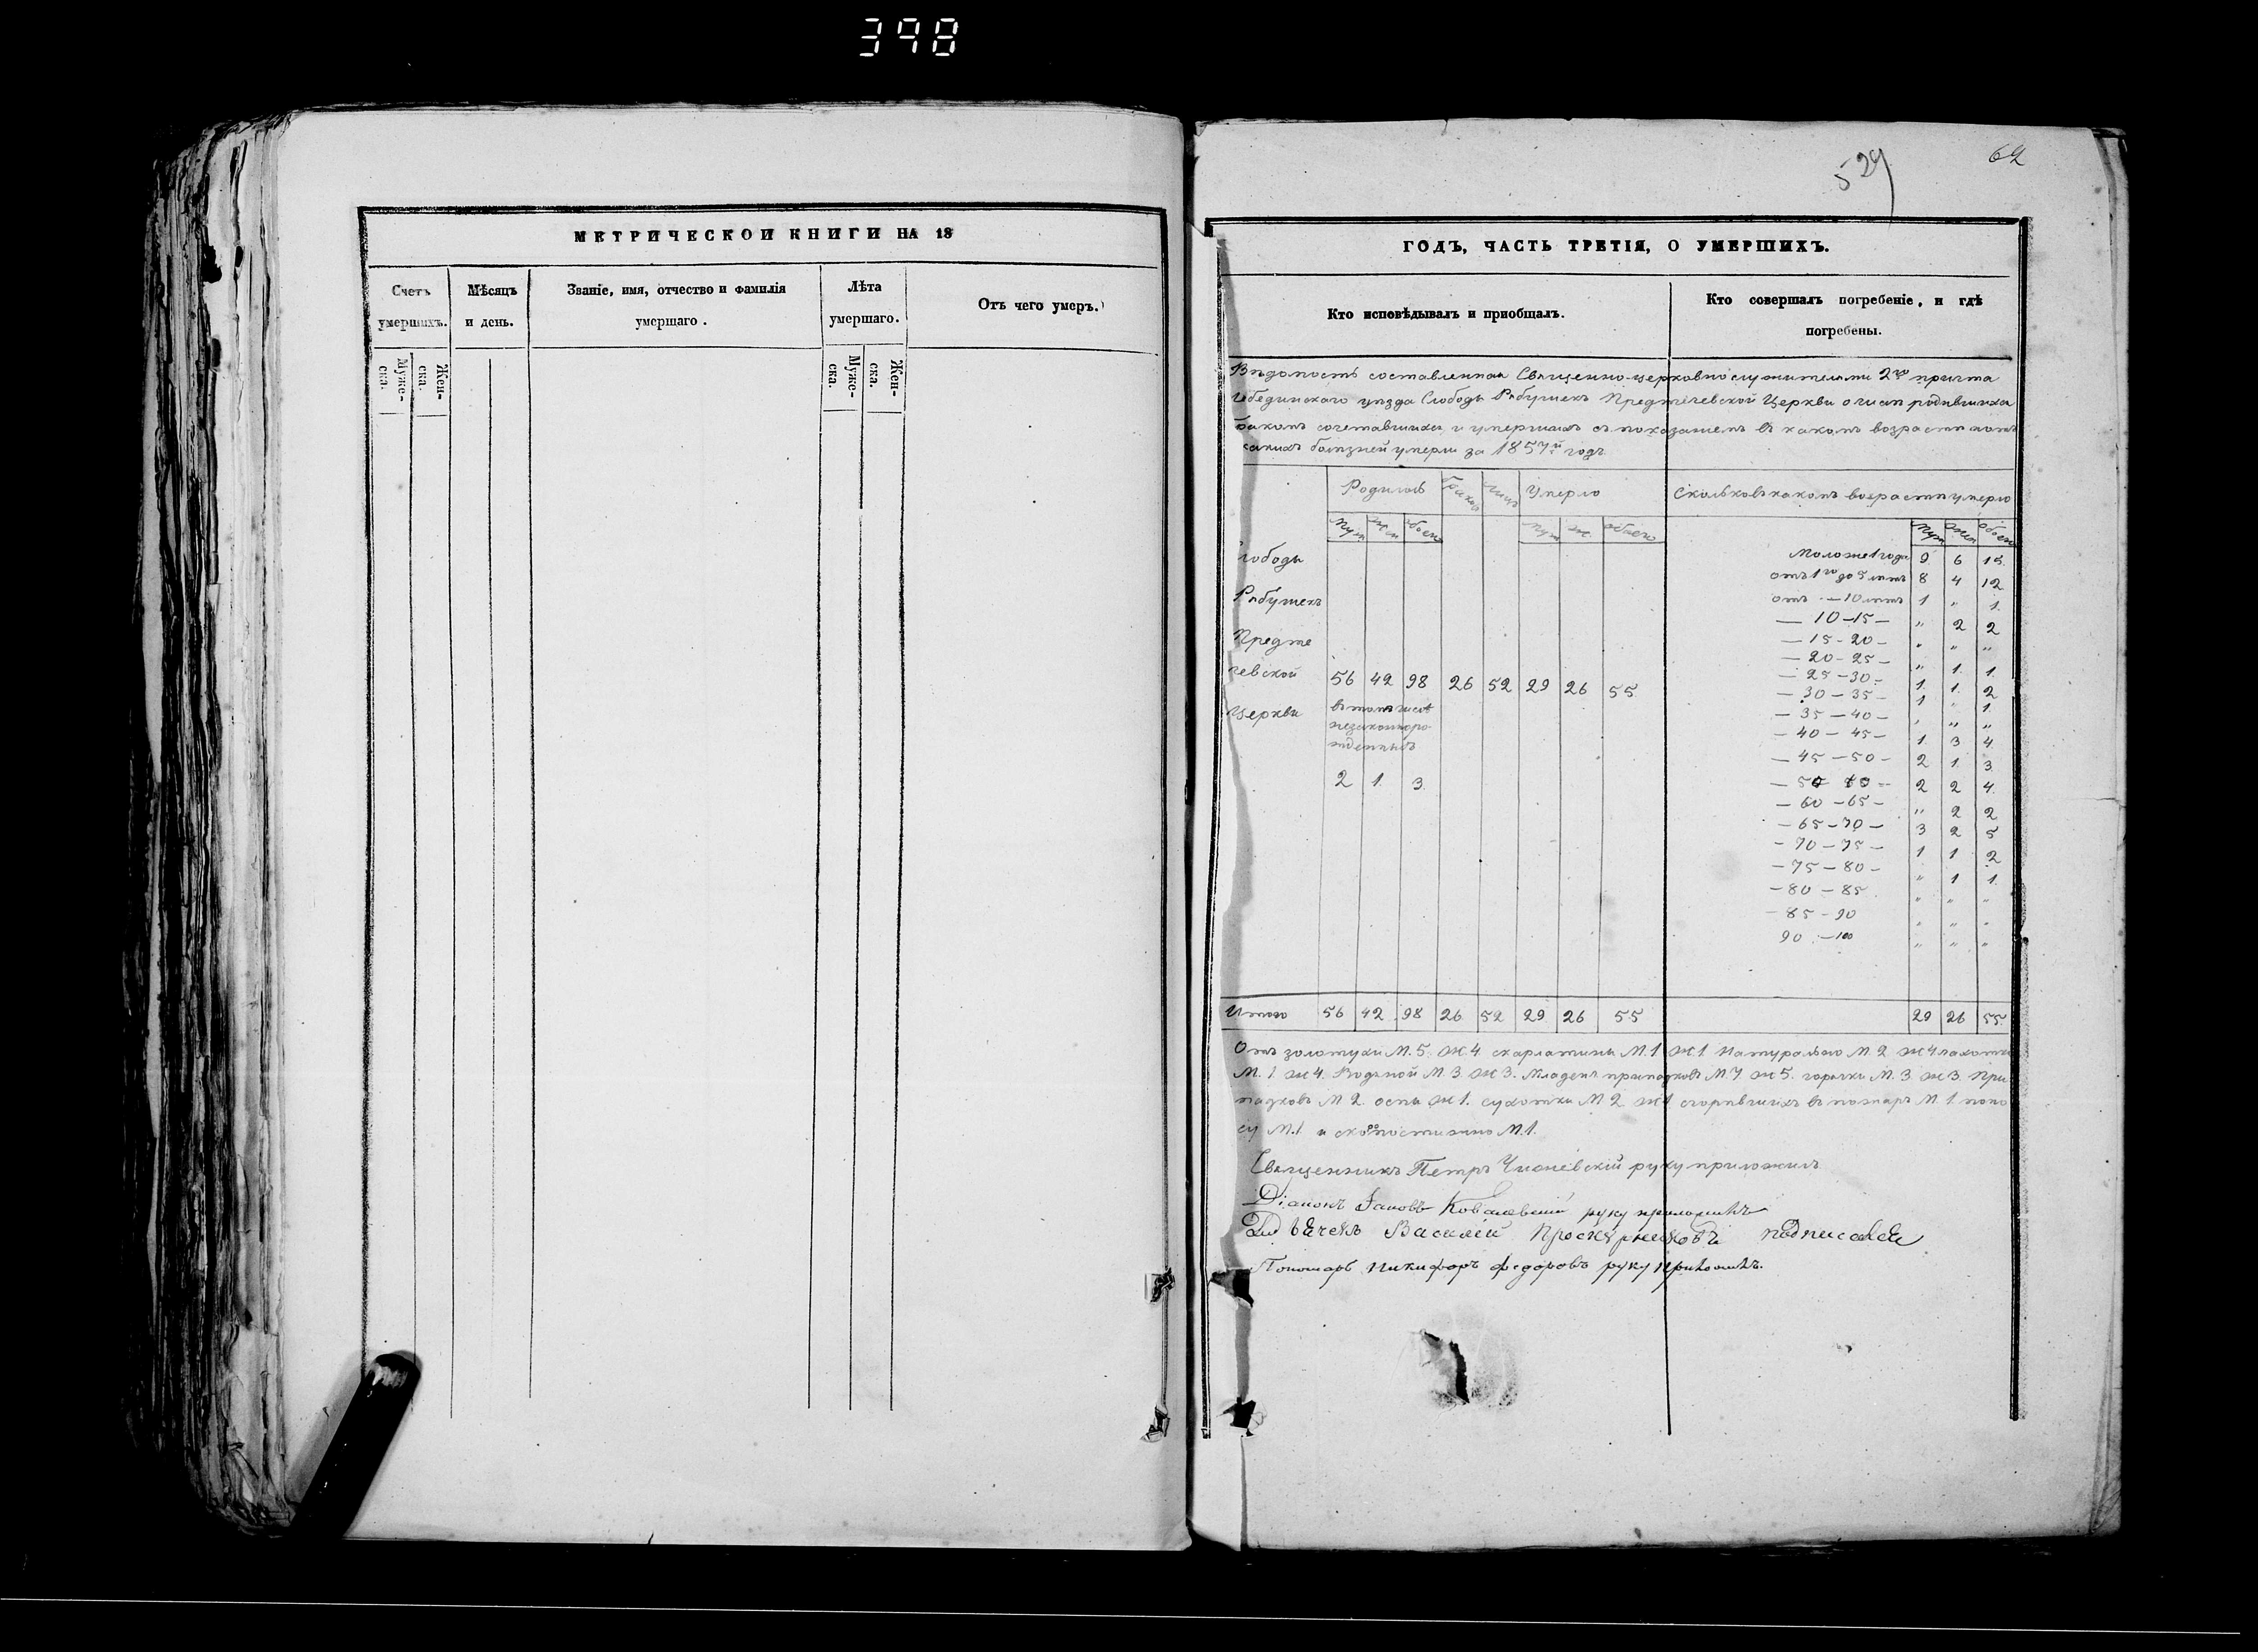 398
МЕТРИЧЕСКОЙ КНИГИ НА 18
Счетъ умершихъ.
Муже-ска.
Жен-ска.
Мѣсяцъ и день.
Званіе, имя, отчество и фамилія умершаго.
Лѣта умершаго.
Муже-ска.
Жен-ска.
Отъ чего умеръ.
529
62
ГОДЪ, ЧАСТЬ ТРЕТІЯ, О УМЕРШИХЪ.
Кто исповѣдывалъ и пріобщалъ.
Кто совершалъ погребеніе, и гдѣ погребены.
Вѣдомость составленная Священно-церковнослужителями 2го причта
Лебединскаго уѣзда Слободы Рябушекъ Предтечевской Церкви о числѣ родившихся
бракомъ сочетавшихся и умершихъ съ показаніемъ въ какомъ возрастѣ и отъ
какихъ болѣзней умерли за 1857й годъ
Родилось
браковъ
лицъ
Умерло
Сколько въ какомъ возрастѣ умерло
Муж Жен обоего
Муж Ж. обоего
Муж Жен обоего
Слободы
Рябушекъ
Предте
чевской
Церкви
56 42 98 26 52 29 26 55
въ томъ числѣ
незаконноро-
жденныхъ
2 1 3
Моложе 1 года 9 6 15
отъ 1го до 5 лѣтъ 8 4 12
отъ — 10 лѣтъ 1 „ 1
— 10 — 15 — „ 2 2
— 15 - 20 — „ „ „
— 20 - 25 — „ 1 1
— 25 — 30 — 1 1 2
— 30 — 35 — 1 „ 1
— 35 — 40 — „ „ „
— 40 — 45 — 1 3 4
— 45 — 50 — 2 1 3
2 2 4
— 60 — 65 — „ 2 2
— 65 — 70 — 3 2 5
— 70 — 75 — 1 1 2
— 75 — 80 — „ 1 1
— 80 — 85 „ „ „
— 85 — 90 „ „ „
90 — 100 „ „ „
Итого 56 42 98 26 52 29 26 55 29 26 55
Отъ золотухи М. 5. Ж. 4 скарлатины М. 1 Ж 1 Натурально М. 2 Ж 4 чахотки
М. 1. Ж 4. Водяной М. 3 Ж 3. Младен припадковъ М 7 Ж 5. горячки М. 3 Ж 3. При
падковъ М 2. оспы Ж 1. сухотки М. 2 Ж 1 сгорѣвшихъ въ пожаръ М. 1 поно
су М. 1 и скоропостижно М. 1.
Священникъ Петръ руку приложилъ
Діаконъ Іаковъ Ковалевскій руку приложилъ
Дьячекъ Василій Проскурниковъ подписался
Пономарь Никифоръ Федоровъ руку приложилъ.